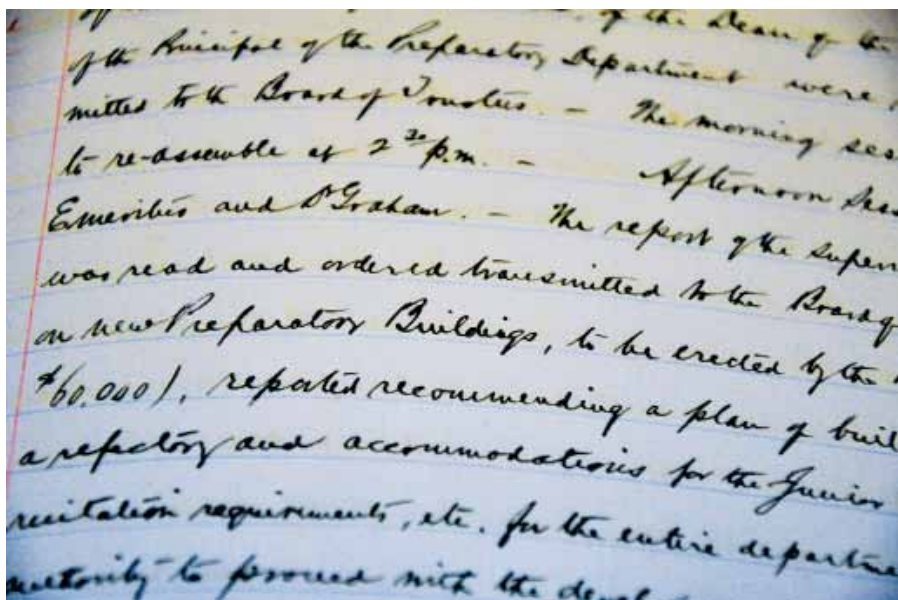 of the Dean of the
of the Principal of the Preparatory Department were
mitted to the Board of Trustees. — The morning ses
to re-assemble at 2³⁰ p.m. — Afternoon Sess
Emeritus and Dr Graham. — The report of the Superi
was read and ordered transmitted to the Board of
on new Preparatory Buildings, to be erected by the
$60.000), reported recommending a plan of buil
a refectory and accommodations for the Junior
recitation requirements, etc. for the entire departme
authority to proceed with the devel